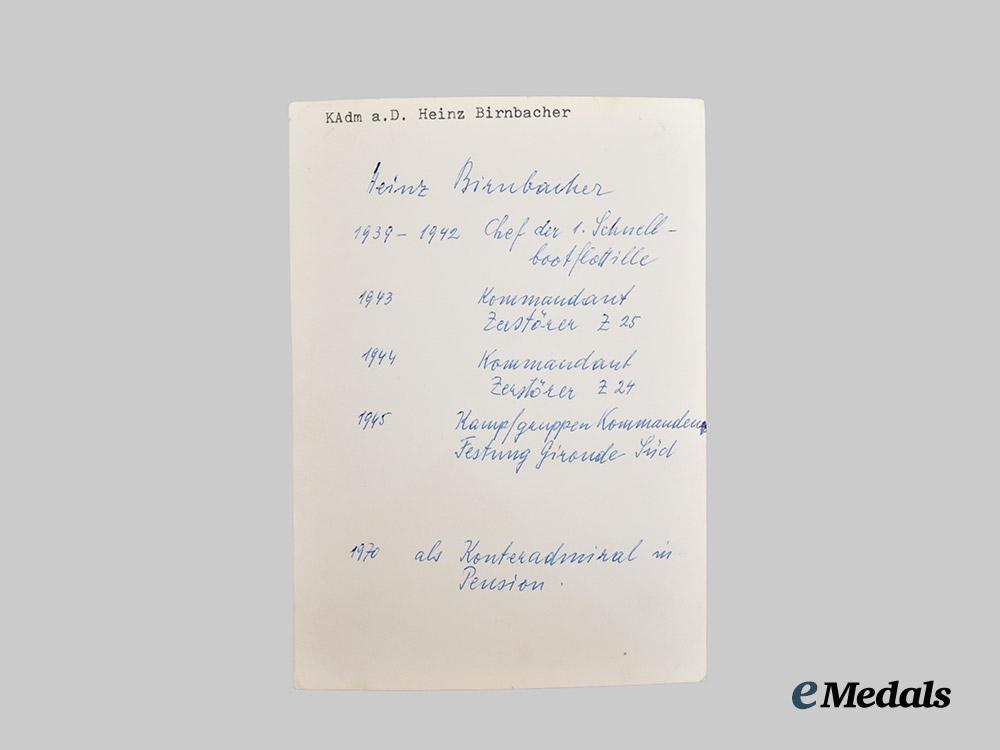 KAdm a.D. Heinz Birnbacher
Heinz Birnbacher
1939 - 1942 Chef der 1. Schnell-
bootflottille
1943 Kommandant
Zerstörer Z 25
1944 Kommandant
Zerstörer Z 24
1945 Kampfgruppen Kommandeur
Festung Gironde Süd
1970 als Konteradmiral in
Pension.
eMedals